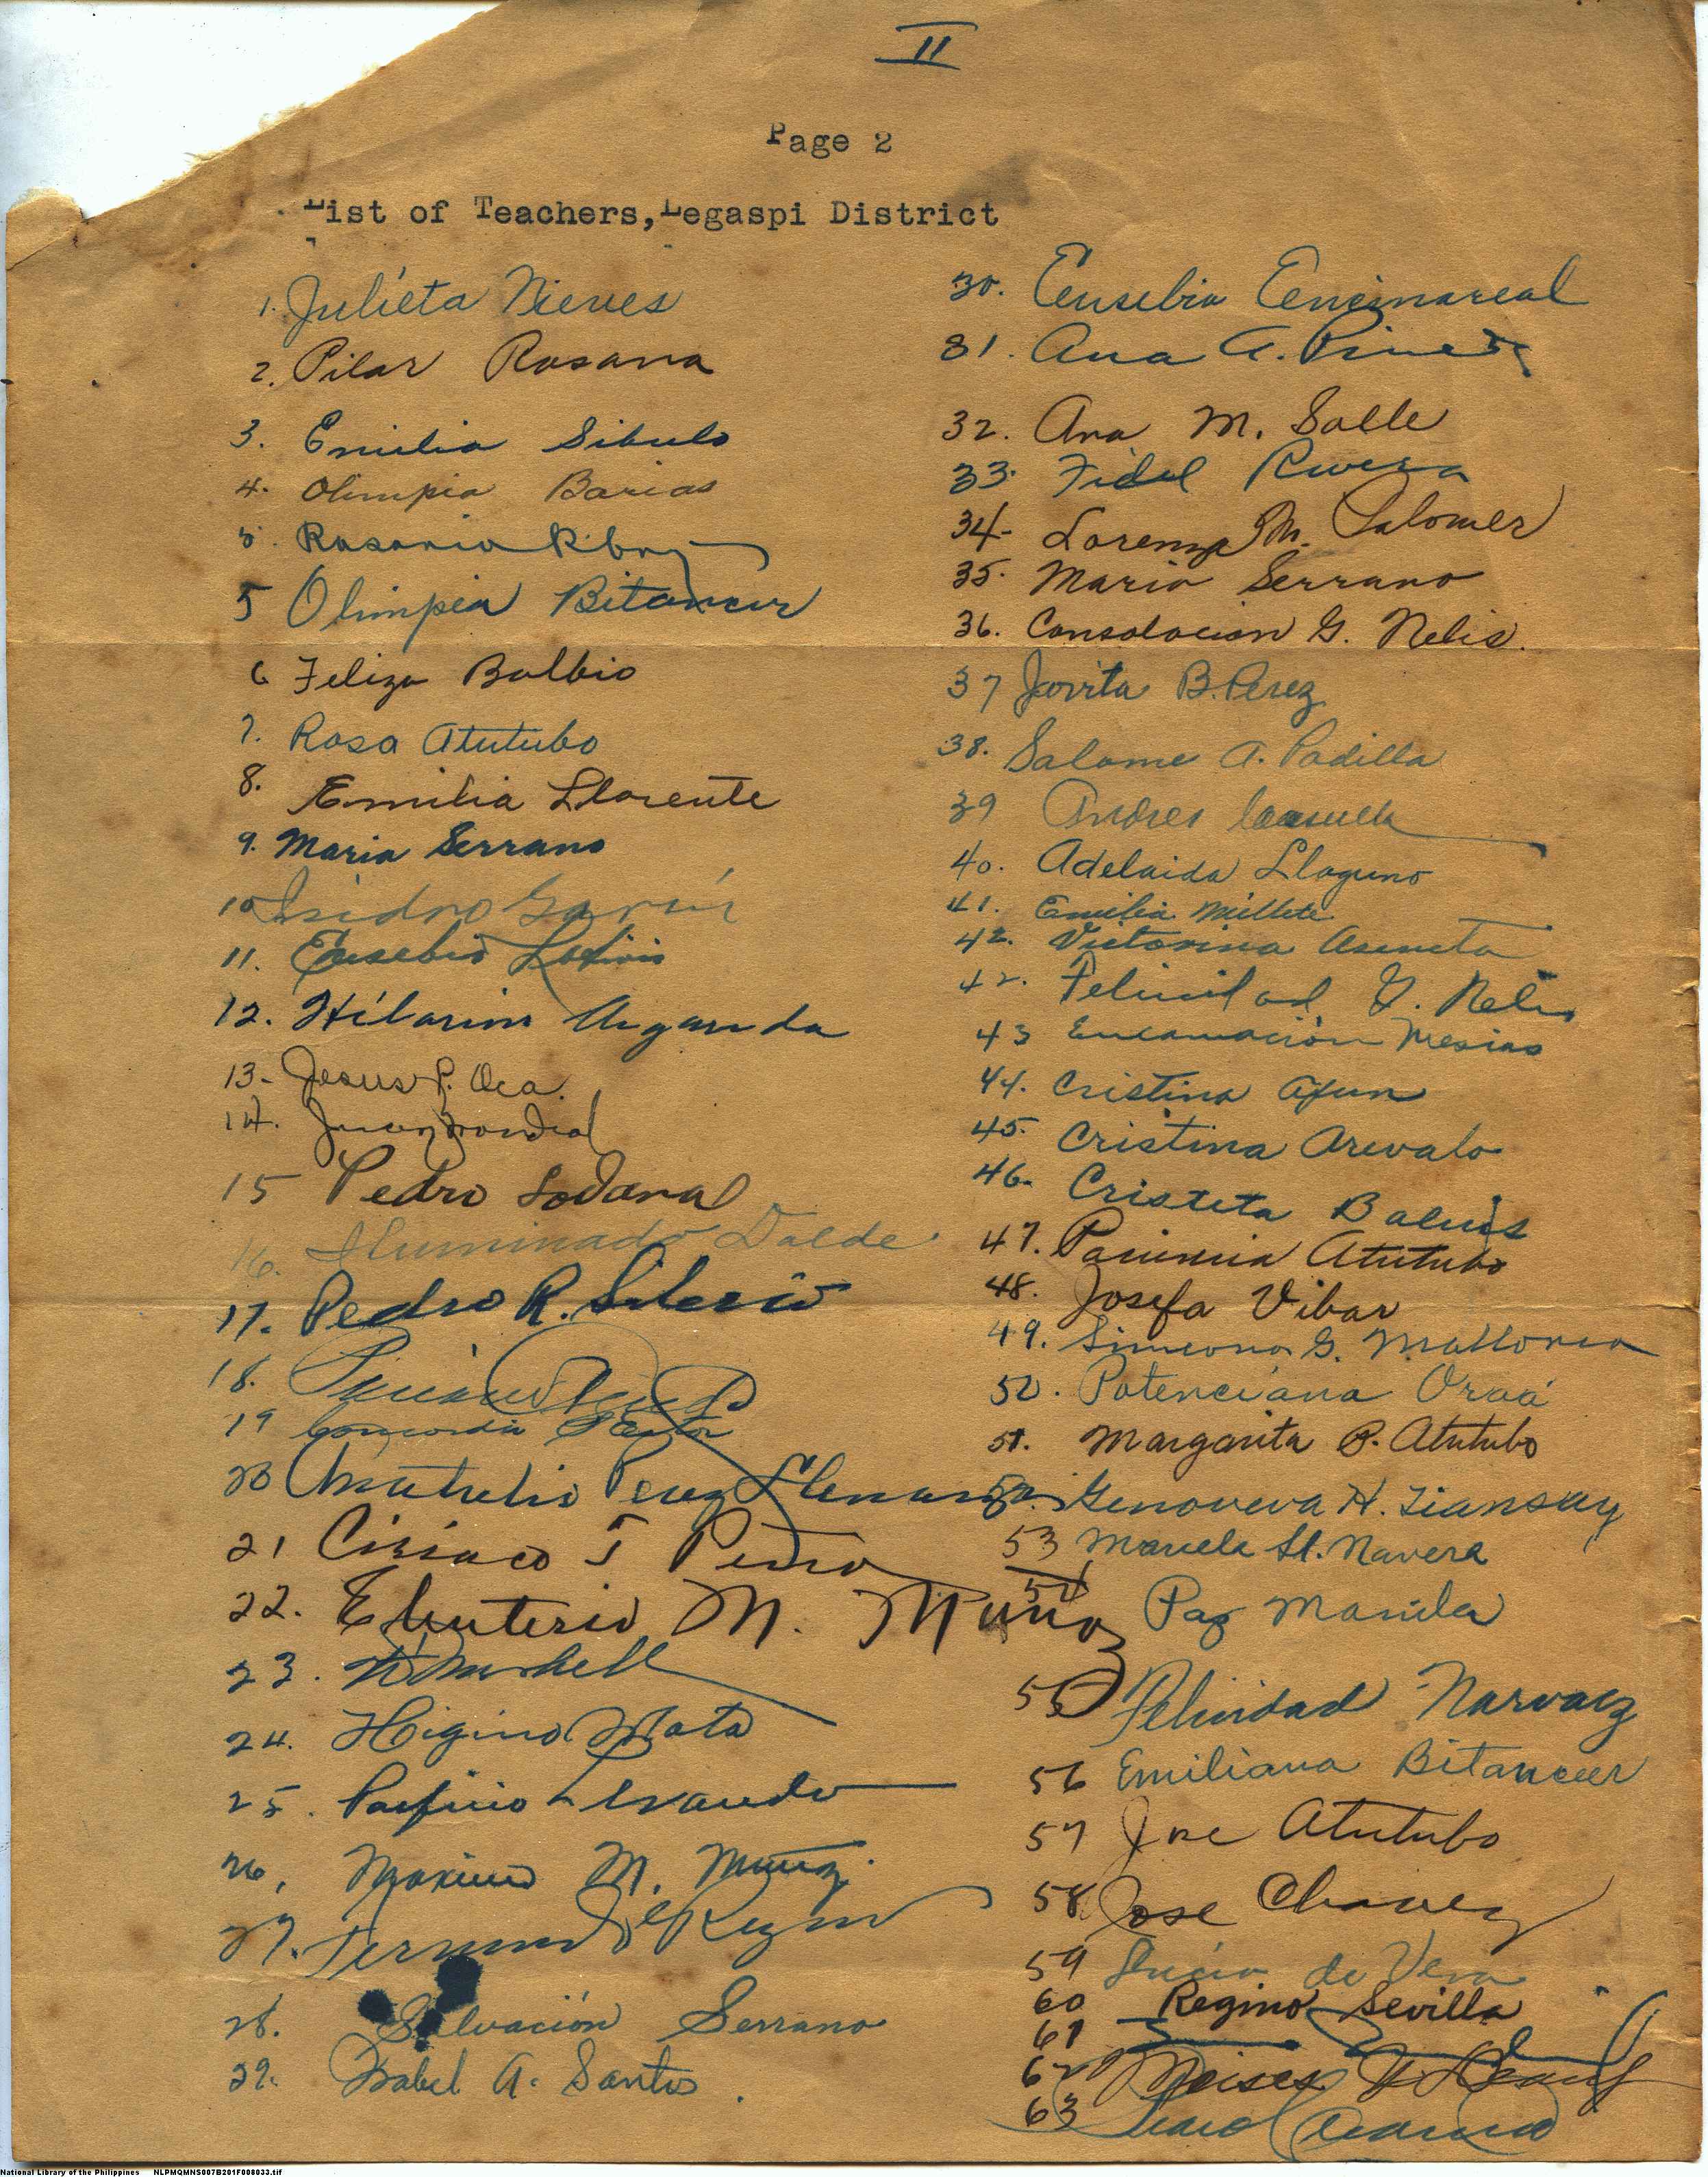 II
Page 2
List of Teachers, Legaspi District
1. Julieta Nieves
2. Pilar Rosana
3. Emilia Sibulo
4. Olimpia Barias
5. Rosario
5 Olimpia Bitancur
6 Feliza Balbio
7. Rosa Atutubo
8. Emilia Llorente
9. Maria Serrano
10 Isidro
11. Eusebio
12. Hilarion
13. Jesus P. Oca.
14. Juan Mondial
15 Pedro Lodana
16. Iluminado Dalde
17. Pedro R.
18.
19 Concordia
20 Perez
21 Ciriaco T Peña
22. Eleuterio M. Muñoz
23.
24. Higino Mata
25. Porfirio
26. Maximo M. Muñoz
27.
28. Salvación Serrano
29. Isabel A. Santos.
30. Eusebia Encinareal
31. Ana A.
32. Ana M. Salle
33. Fidel Rivera
34- Lorenza M. Salomer
35. Maria Serrano
36. Consolacion G. Nelis.
37 Jovita B. Perez
38. Salome A. Padilla
39 Andres
40. Adelaida Llaguno
41. Emilia Millete
42. Victorina Asuncta
42. Felicidad G. Nelis
43 Encarnación Mesias
44. Cristina
45. Cristina Arevalo
46. Cristeta
47. Atutubo
48. Josefa Vibar
49. Simeona G. Mallorca
50. Potenciana Oraá
51. Margarita P. Atutubo
52. Genoveva H. Tiansay
53 Manuela Ll. Navera
54 Paz Manila
55 Felicidad Narvaez
56 Emiliana Bitancur
57 Joe Atutubo
58 Jose Chavez
59 Lucia de Vera
60 Regino Sevilla
61
62 Moises
63
National Library of the Philippines NLPMQMNS007B201F008033.tif